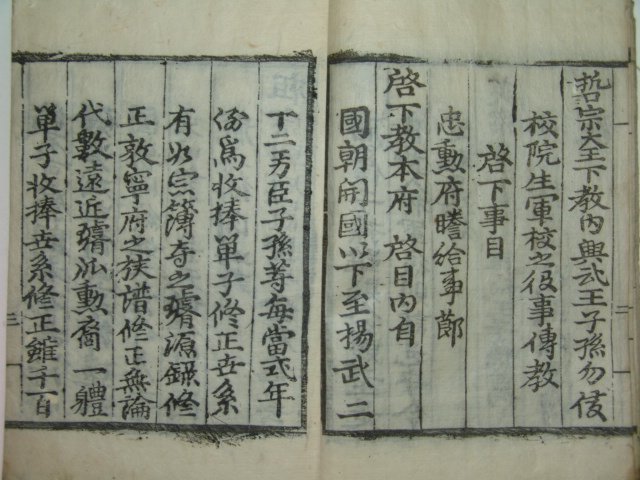 哲宗大王下教內興武王子孫勿侵
校院生軍校之役事傳教
啓下事目
忠勳府謄給事節
啓下教本府 啓目內自
國朝開國以下至揚武二
十二功臣子孫等每當式年
修爲收捧單子修正世系
有如宗簿寺之璿源錄修
正敦寧府之族譜修正無論
代數遠近璿派勳裔一體
單子收捧世系修正雖千百
二
三